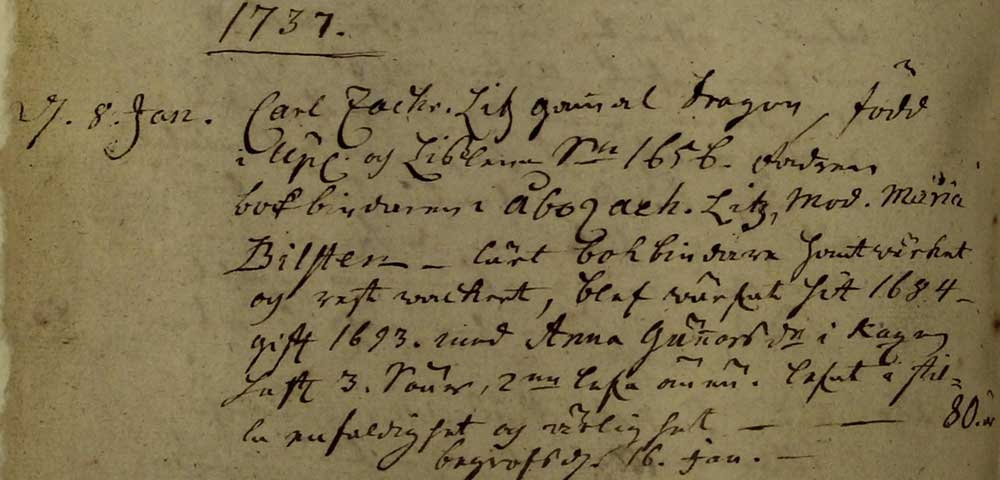 1737.
D. 8. Jan. Carl Zachr. Litz gam̄al dragon, född
i Upl. og Sn 1656. fadren
bokbindaren i Åbo Zach. Litz, Mod. Maria
Bilsten – lärt bokbindare handtvärket
og rest wackert, blef wärfvat hit 1684 –
gift 1693. med Anna Gun̄arsdr i Kagen
haft 3. Söner, 2ne lefva än nu. lefvat i stil=
la enfaldighet og ärlighet — — 80. år
begrofs d. 16. Jan. —